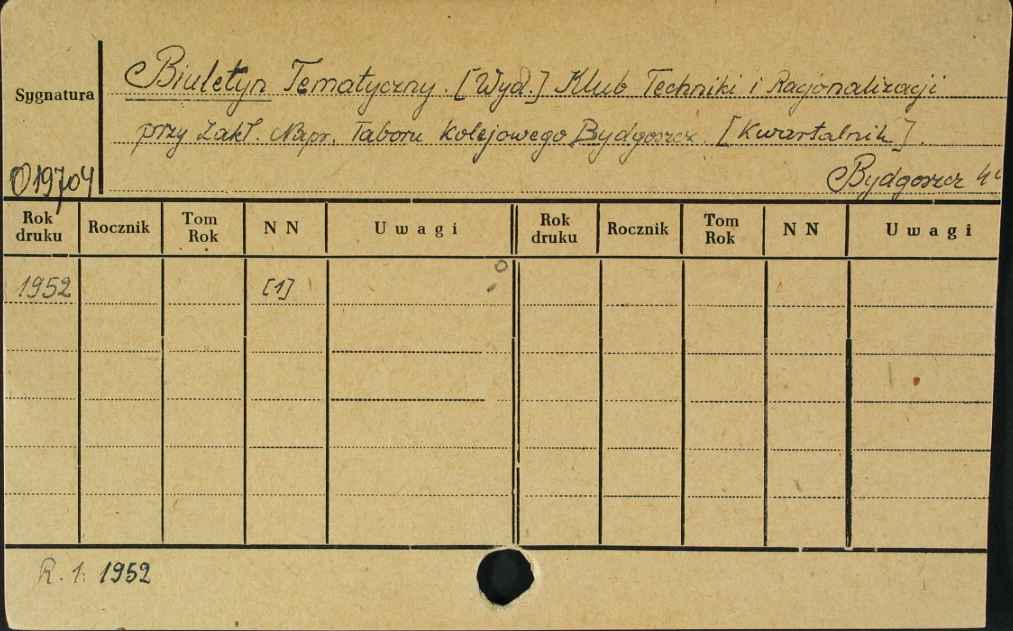 Biuletyn Tematyczny. [Wyd.] Klub Techniki i Racjonalizacji
Sygnatura
przy Zakł. Napr. Taboru Kolejowego Bydgoszcz. [Kwartalnik].
019704
Bydgoszcz 4°
Rok druku Rocznik Tom Rok NN Uwagi Rok druku Rocznik Tom Rok NN Uwagi
1952 [1]
R. 1. 1952